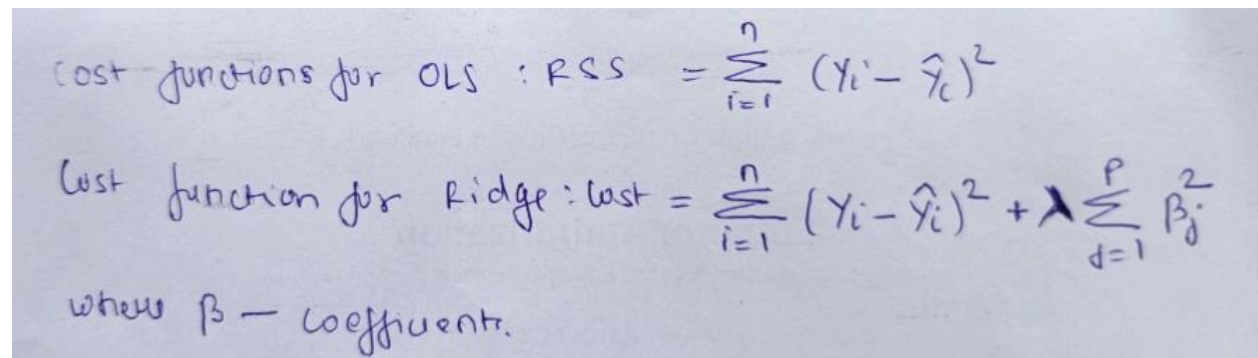 Cost functions for OLS : RSS = $\sum_{i=1}^{n} (y_i - \hat{y}_i)^2$
Cost function for Ridge : Cost = $\sum_{i=1}^{n} (y_i - \hat{y}_i)^2 + \lambda \sum_{j=1}^{p} \beta_j^2$
where β — coefficients.